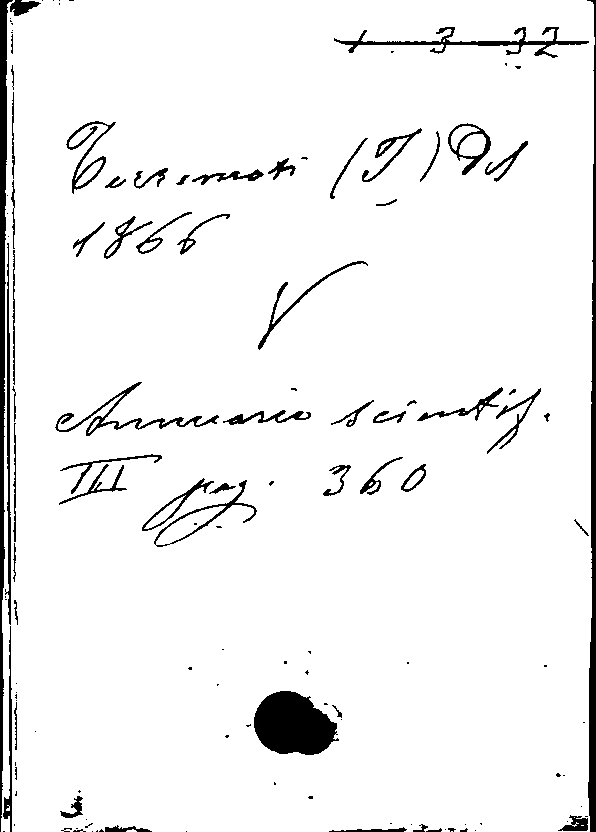 1 3 32
Terremoti (I) Del
1866
V
Annuario scientif.
III pag. 360